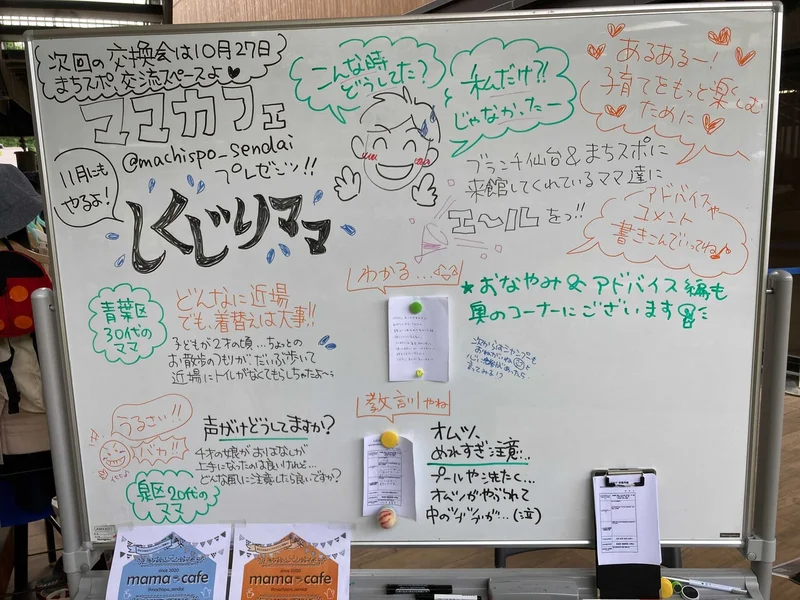 次回の交換会は10月27日
まちスポ交流スペースよ♥
ママカフェ
@machispo_sendai
プレゼンツ!!
11月にも
やるよ!
しくじりママ
こんな時
どうしてた?
私だけ?!
じゃなかったー
あるあるー!
子育てをもっと楽しむ
ために
ブランチ仙台&まちスポに
来館してくれているママ達に
エールをっ!!
アドバイスや
コメント
書きこんでいってね♪
わかる…
★おなやみ&アドバイス編も
奥のコーナーにございます
青葉区
30代の
ママ
どんなに近場
でも、着替えは大事!!
子どもが2才の頃…ちょっとの
お散歩のつもりが、だいぶ歩いて
近場にトイレがなくてもらしちゃたよ〜
うるさい!!
バカ!!
声がけどうしてますか?
4才の娘がおはなしが
上手になったのは良いけれど…
どんな風に注意したら良いですか?
泉区20代の
ママ
教訓やね
オムツ、
ぬれすぎ注意…
プールや洗たく…
オムツがやぶれて
中のツブツブが…(泣)
since 2020
mama cafe
since 2020
mama cafe